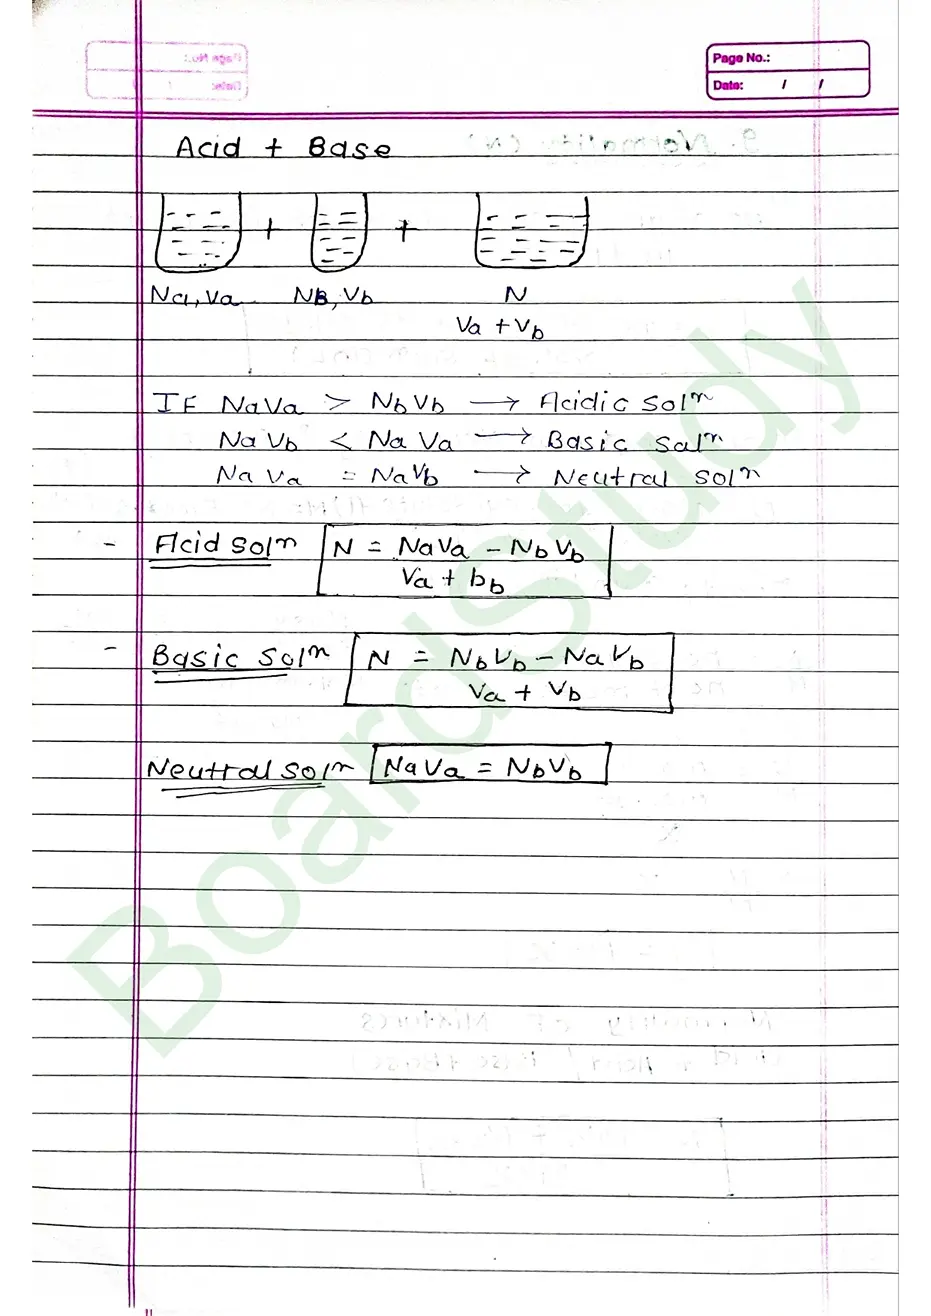 Page No.:
Date: / /
Acid + Base
+ +
Na, Va NB, Vb N
Va + Vb
IF NaVa > NbVb → Acidic Solⁿ
NaVb < NaVa → Basic Solⁿ
NaVa = NaVb → Neutral Solⁿ
- Acid Solⁿ N = NaVa - NbVb
Va + bb
- Basic Solⁿ N = NbVb - NaVb
Va + Vb
Neutral Solⁿ NaVa = NbVb
BoardStudy